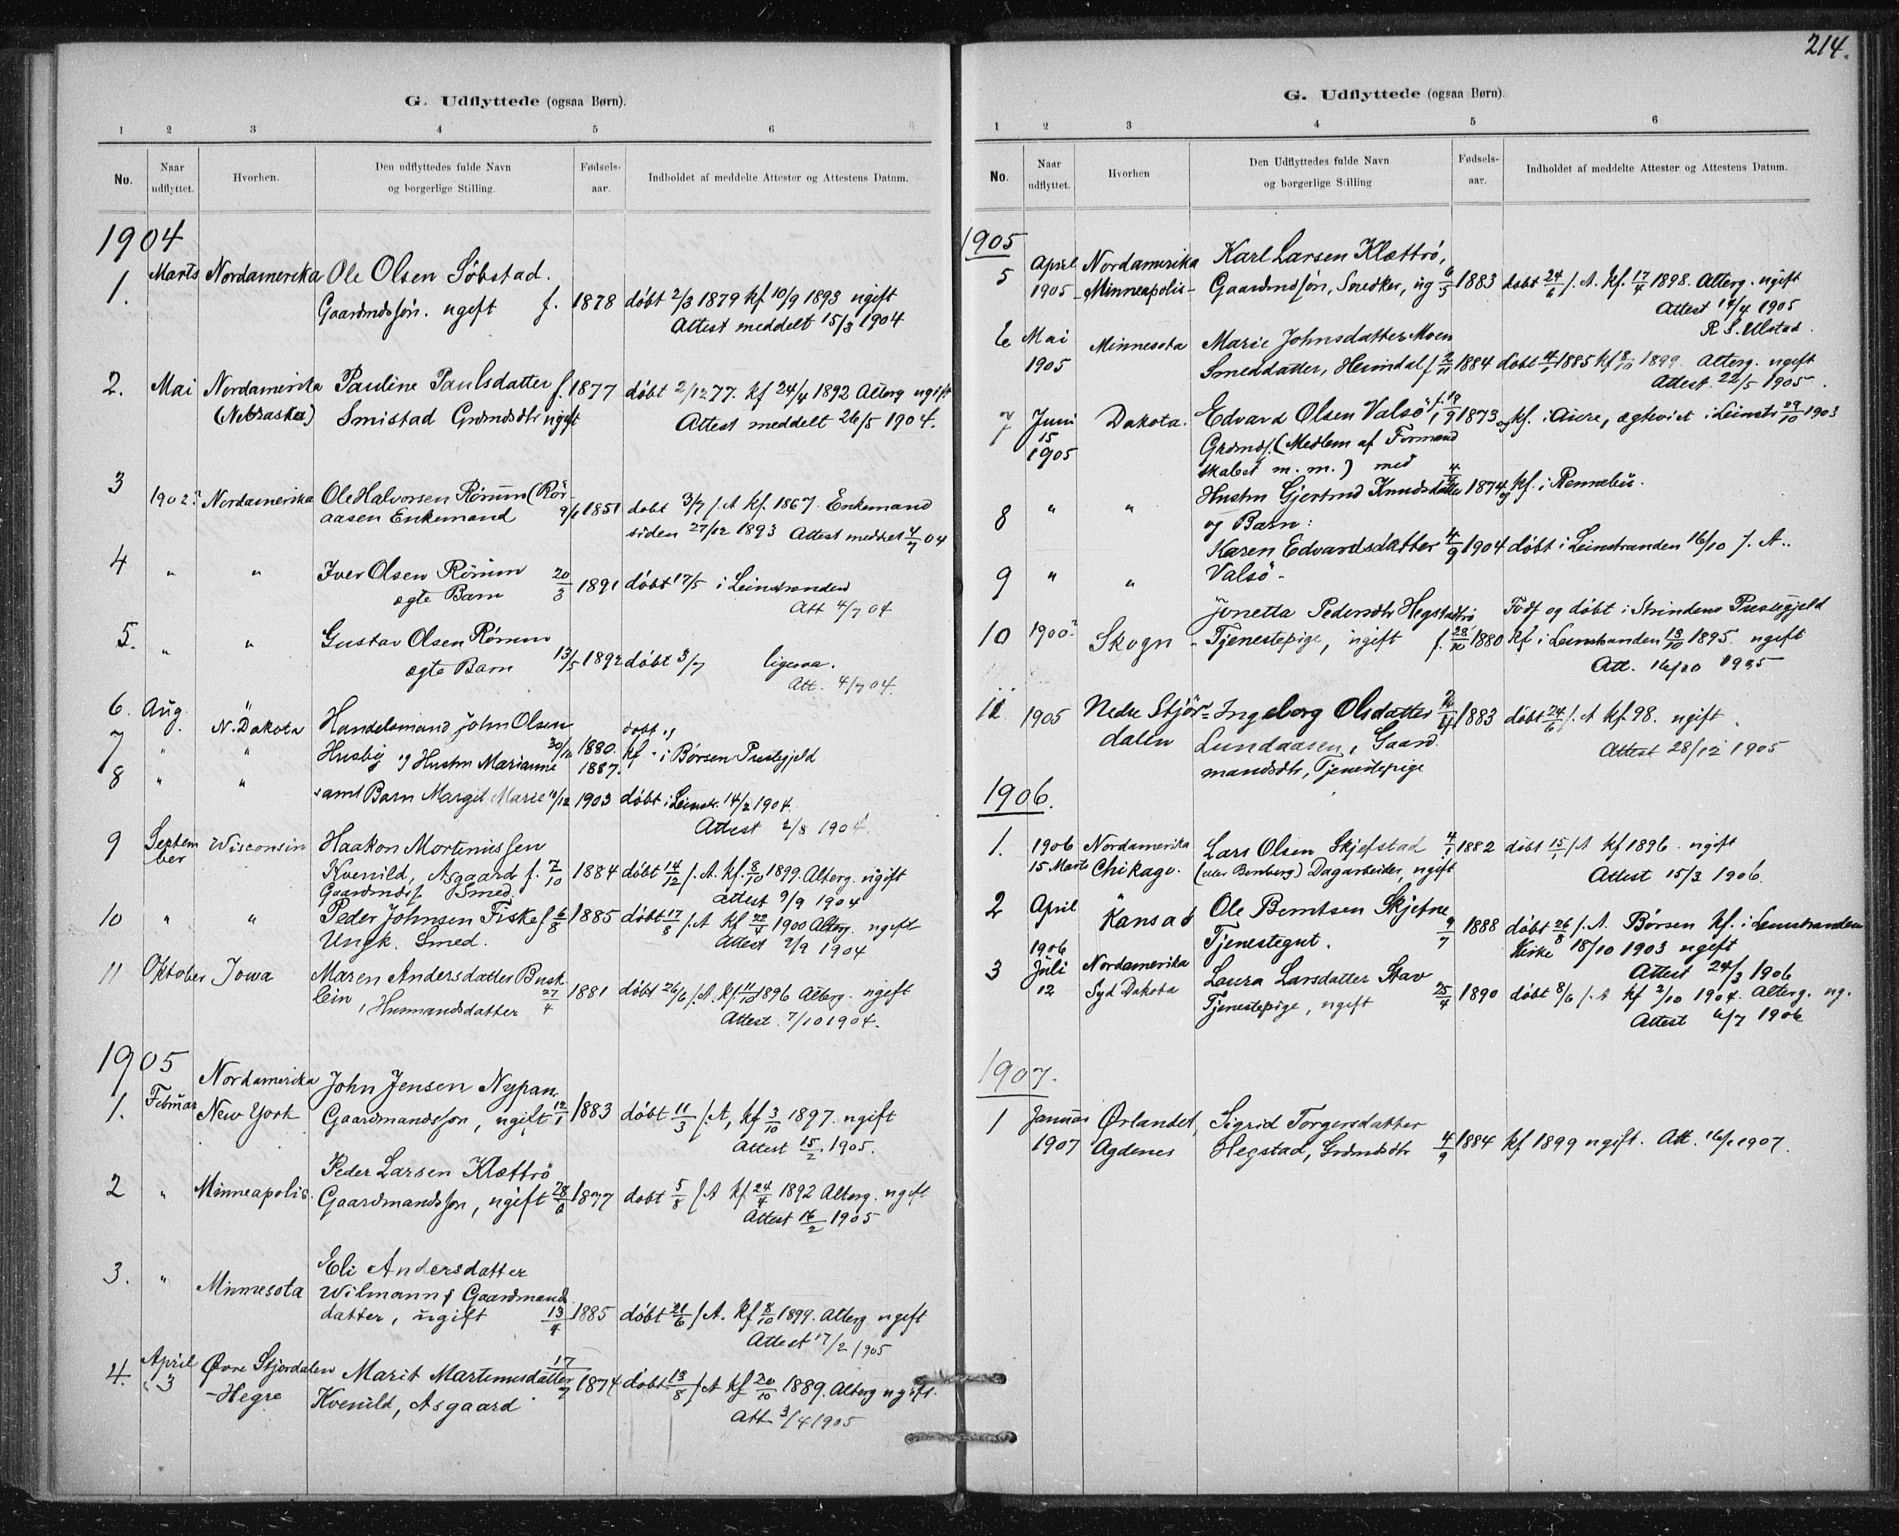 G. Udflyttede (ogsaa Børn).
1 2 3 4 5 6
No. Naar udflyttet. Hvorhen. Den udflyttedes fulde Navn og borgerlige Stilling. Fødsels-aar. Indholdet af meddelte Attester og Attestens Datum.
1904
1. Marts Nordamerika Ole Olsen Söbstad.
Gaardmdssøn. ugeft f. 1878 döbt 2/3 1879 kf 10/9 1893 ugift
Attest meddelt 15/3 1904
2. Mai Nordamerika Pauline Paulsdatter f. 1877 döbt 2/12 77. kf 24/4 1892 Alterg ugift
(Nebraska) Smistad Grdmdsdtr ugift Attest meddelt 26/5 1904.
3 1902? Nordamerika Ole Halvorsen Rörum (Rör-
aasen Enkemand 9/1 1851 dobt 3/7 f. A kf. 1867. Enkemand
siden 27/12 1893 Attest meddelt 4/7 04
4 " " Iver Olsen Rörum
ægte Barn 20/3 1891 döbt 17/5 i Leinstranden
Att 4/7 04
5. " " Gustav Olsen Rörum
ægte Barn 13/5 1892 döbt 3/7 ligesaa.
Att. 4/7 04.
6. Aug. N. Dakota Handelsmand John Olsen döbt og
7 " " Husby og Hustru Marianne 30/12 1880. kf - i Børsen Prestegjeld
1887.
8 " " samt Barn Margit Marie 10/12 1903 döbt i Leinstr. 14/2 1904.
Attest 2/8 1904.
9 September Wisconsin Haakon Mortinussen
Kvenild, Asgaard f. 7/10 1884 döbt 14/12 f. A. kf. 8/10 1899. Alterg. ugift
Gaardmdsf Smed. attest 9/9 1904
10 " " Peder Johnsen Fiske f 6/8 1885 döbt 17/8 f. A kf 22/4 1900 Alterg. ugeft
Ungk. Smed. Attest 2/9 1904
11 Oktober Iowa Maren Andersdatter Busk
lein, Husmandsdatter 27/4 1881 döbt 26/6 f. A. kf. 11/10 1896 Alterg. ugeft
Attest. 7/10 1904.
1905
Nordamerika John Jensen Nypan
1. Februar New York Gaardmandssøn, ugift 12/1 1883 döbt 11/3 f. A, kf 3/10 1897. ugift
Attest 15/2 1905.
Peder Larsen Klættrö
2 " Minneapolis. Gaardmandssøn, ugift 28/6 1877 dobt 5/8 f. A kf 24/4 1892 Alterg. ugift
Attest 16/2 1905
Eli Andersdatter
3. " Minnesota Wilmann, Gaardmands
datter, ugift 13/4 1885 döbt 21/6 f. A. kf 8/10 1899. Alterg ugift
Attest 17/2 1905
4. April 3 Øvre Stjørdalen Marit Martinusdatter 17/7 1874 döbt 13/8 f. A kf 20/10 1889. Alterg ugift.
-Hegre Kvenild, Asgaard
Att 3/4 1905
214.
G. Udflyttede (ogsaa Børn).
1 2 3 4 5 6
No. Naar udflyttet. Hvorhen Den Udflyttedes fulde Navn og borgerlige Stilling Fødsels-aar. Indholdet af meddelte Attester og Attestens Datum.
1905
5 April Nordamerika Karl Larsen Klættrö,
1905 -Minneapolis- Gaardmdssøn, Snedker, ug 6/3 1883 dobt 24/6 f. A. kf. 17/4 1898. Alterg. ugift
Attest 14/4 1905
R S. Ulstad.
6 Mai 1905 Minnesota Marie Johnsdatter Moen
Smeddatter, Heimdal f 2/11 1884 döbt 4/1 1885 kf 8/10 1899. Alterg. ugift
Attest. 22/5 1905.
7 Juni 15 1905 Dakota. Edvard Olsen Valsö, f. 19/9 1873 og kf. i Aure, ægteviet i Leinstr 29/10 1903
Grdmds. (Medlem af Formand
skabet m. m.) med
8 " " Hustru Gjertrud Knudsdatter 4/ 1874 og kf. i Rennebu.
og Barn:
9 " " Karen Edvardsdatter 4/9 1904 döbt i Leinstranden 16/10 f. A..
Valsö-
Jonetta Pedersdtr Hegstadtrö Födt og døbt i Strindens Prestegjeld
10 1900? Skogn - Tjenestepige, ugift f. 28/10 1880 kf i Leinstranden 13/10 1895. ugeft
Att. 16/10 1905
11 1905 Nedre Stjør- Ingeborg Olsdatter 1883 döbt 24/6 f. A kf. 98. ugift.
dalen Lundaasen, Gaard
mandsdtr, Tjenestepige Attest 28/12 1905
1906.
1. 1906 Nordamerika Lars Olsen Skjefstad 4/1 1882 döbt 15/1 f. A kf 1896. ugift
15 Marts Chikago. (eller Benberg) Dagarbeider, ugift Attest 15/3 1906.
2 April 1906 " Kansas Ole Berntsen Skjefne
Tjenestegut. 9/7 1888 döbt 26/8 f. A. Børsen kf. i Leinstranden
Kirke 18/10 1903 ugeft
Attest 24/3 1906
3 Juli 12 Nordamerika Laura Larsdatter Stav
Syd Dakota Tjenestepige, ugeft 25/4 1890 döbt 8/6 f. A kf 2/10 1904. Alterg. ug.
Attest 6/7 1906
1907.
1 Januar Ørlandet, Sigrid Torgersdatter
1907 Agdenes Hegstad, Grdmdsdtr 4/9 1884 kf 1899 ugift. Att. 16/1 1907.